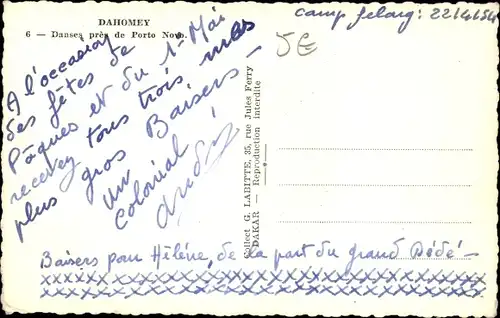 DAHOMEY
6 — Danses près de Porto Novo
camp : 22/4/54
JE
A l'occasion
des fêtes de
Pâques et du 1er Mai
recevez tous trois mes
plus gros Baisers
un
colonial !
André
Collect G. LABITTE, 35, rue Jules Ferry
DAKAR — Reproduction interdite
Baisers pour Hélène, de la part du grand Dédé -
xxxxxxxxxxxxxxxxxxxxxxxxxxxxxxxxxx
xxxxxxxxxxxxxxxxxxxxxxxxxxxxxxxxxx